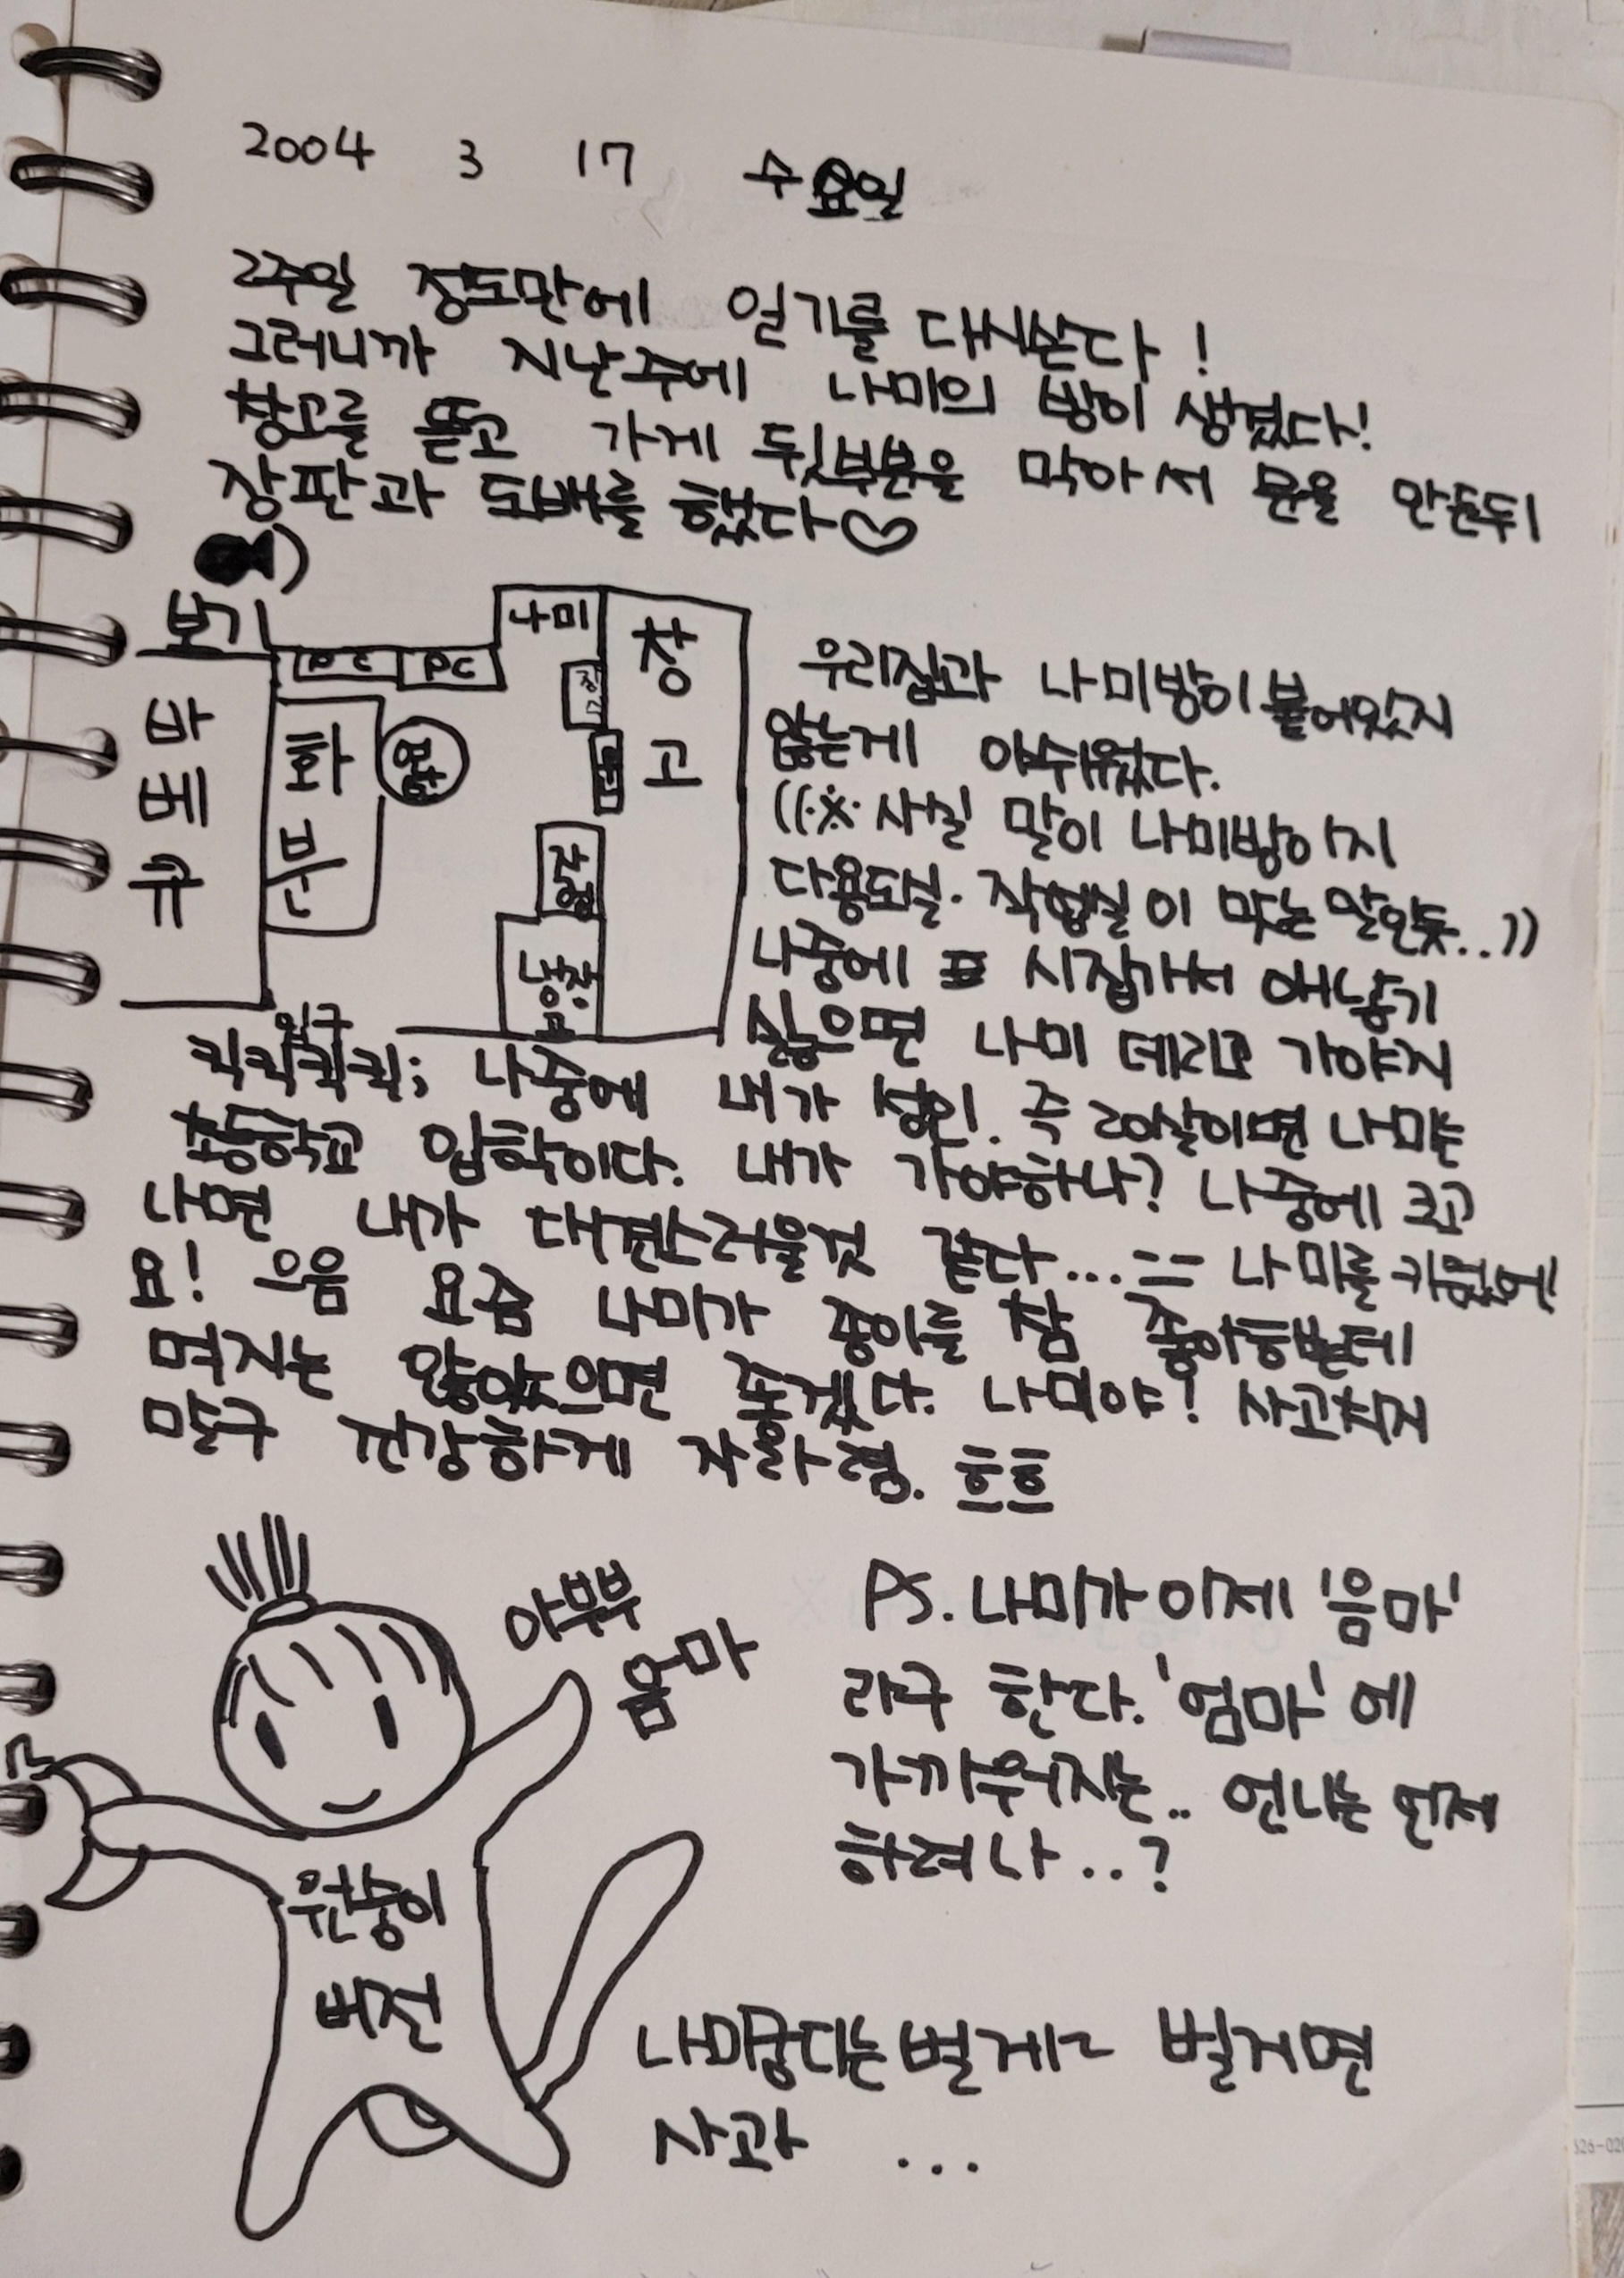 2004 3 17 수요일
2주일 정도만에 일기를 다시쓴다!
그러니까 지난주에 나미의 방이 생겼다!
창고를 뜯고 가게 뒷부분을 막아서 문을 만든뒤
장판과 도배를 했다♡
보기
나미
창고
PC PC
바베큐
화분
냉장고
입구
우리집과 나미방이 붙어있지
않는게 아쉬웠다.
((※ 사실 말이 나미방이지
다용도실. 작업실이 맞는말인듯..))
나중에 시집가서 애낳기
싫으면 나미 데리고 가야지
킥킥킥킥; 나중에 내가 성인. 즉 20살이면 나미는
초등학교 입학이다. 내가 가야하나? 나중에 크고
나면 내가 대견스러울것 같다...== 나미를 키웠어
요! 으음 요즘 나미가 종이를 참 좋아하는데
먹지는 않았으면 좋겠다. 나미야! 사고치지
말구 건강하게 자라렴. 흐흐
아부부
음마
PS. 나미가 이제 '음마'
라구 한다. '엄마'에
가까워지는.. 언니는 언제
하려나..?
원숭이
버전
나미궁디는 벌게~ 벌거면
사과 ...